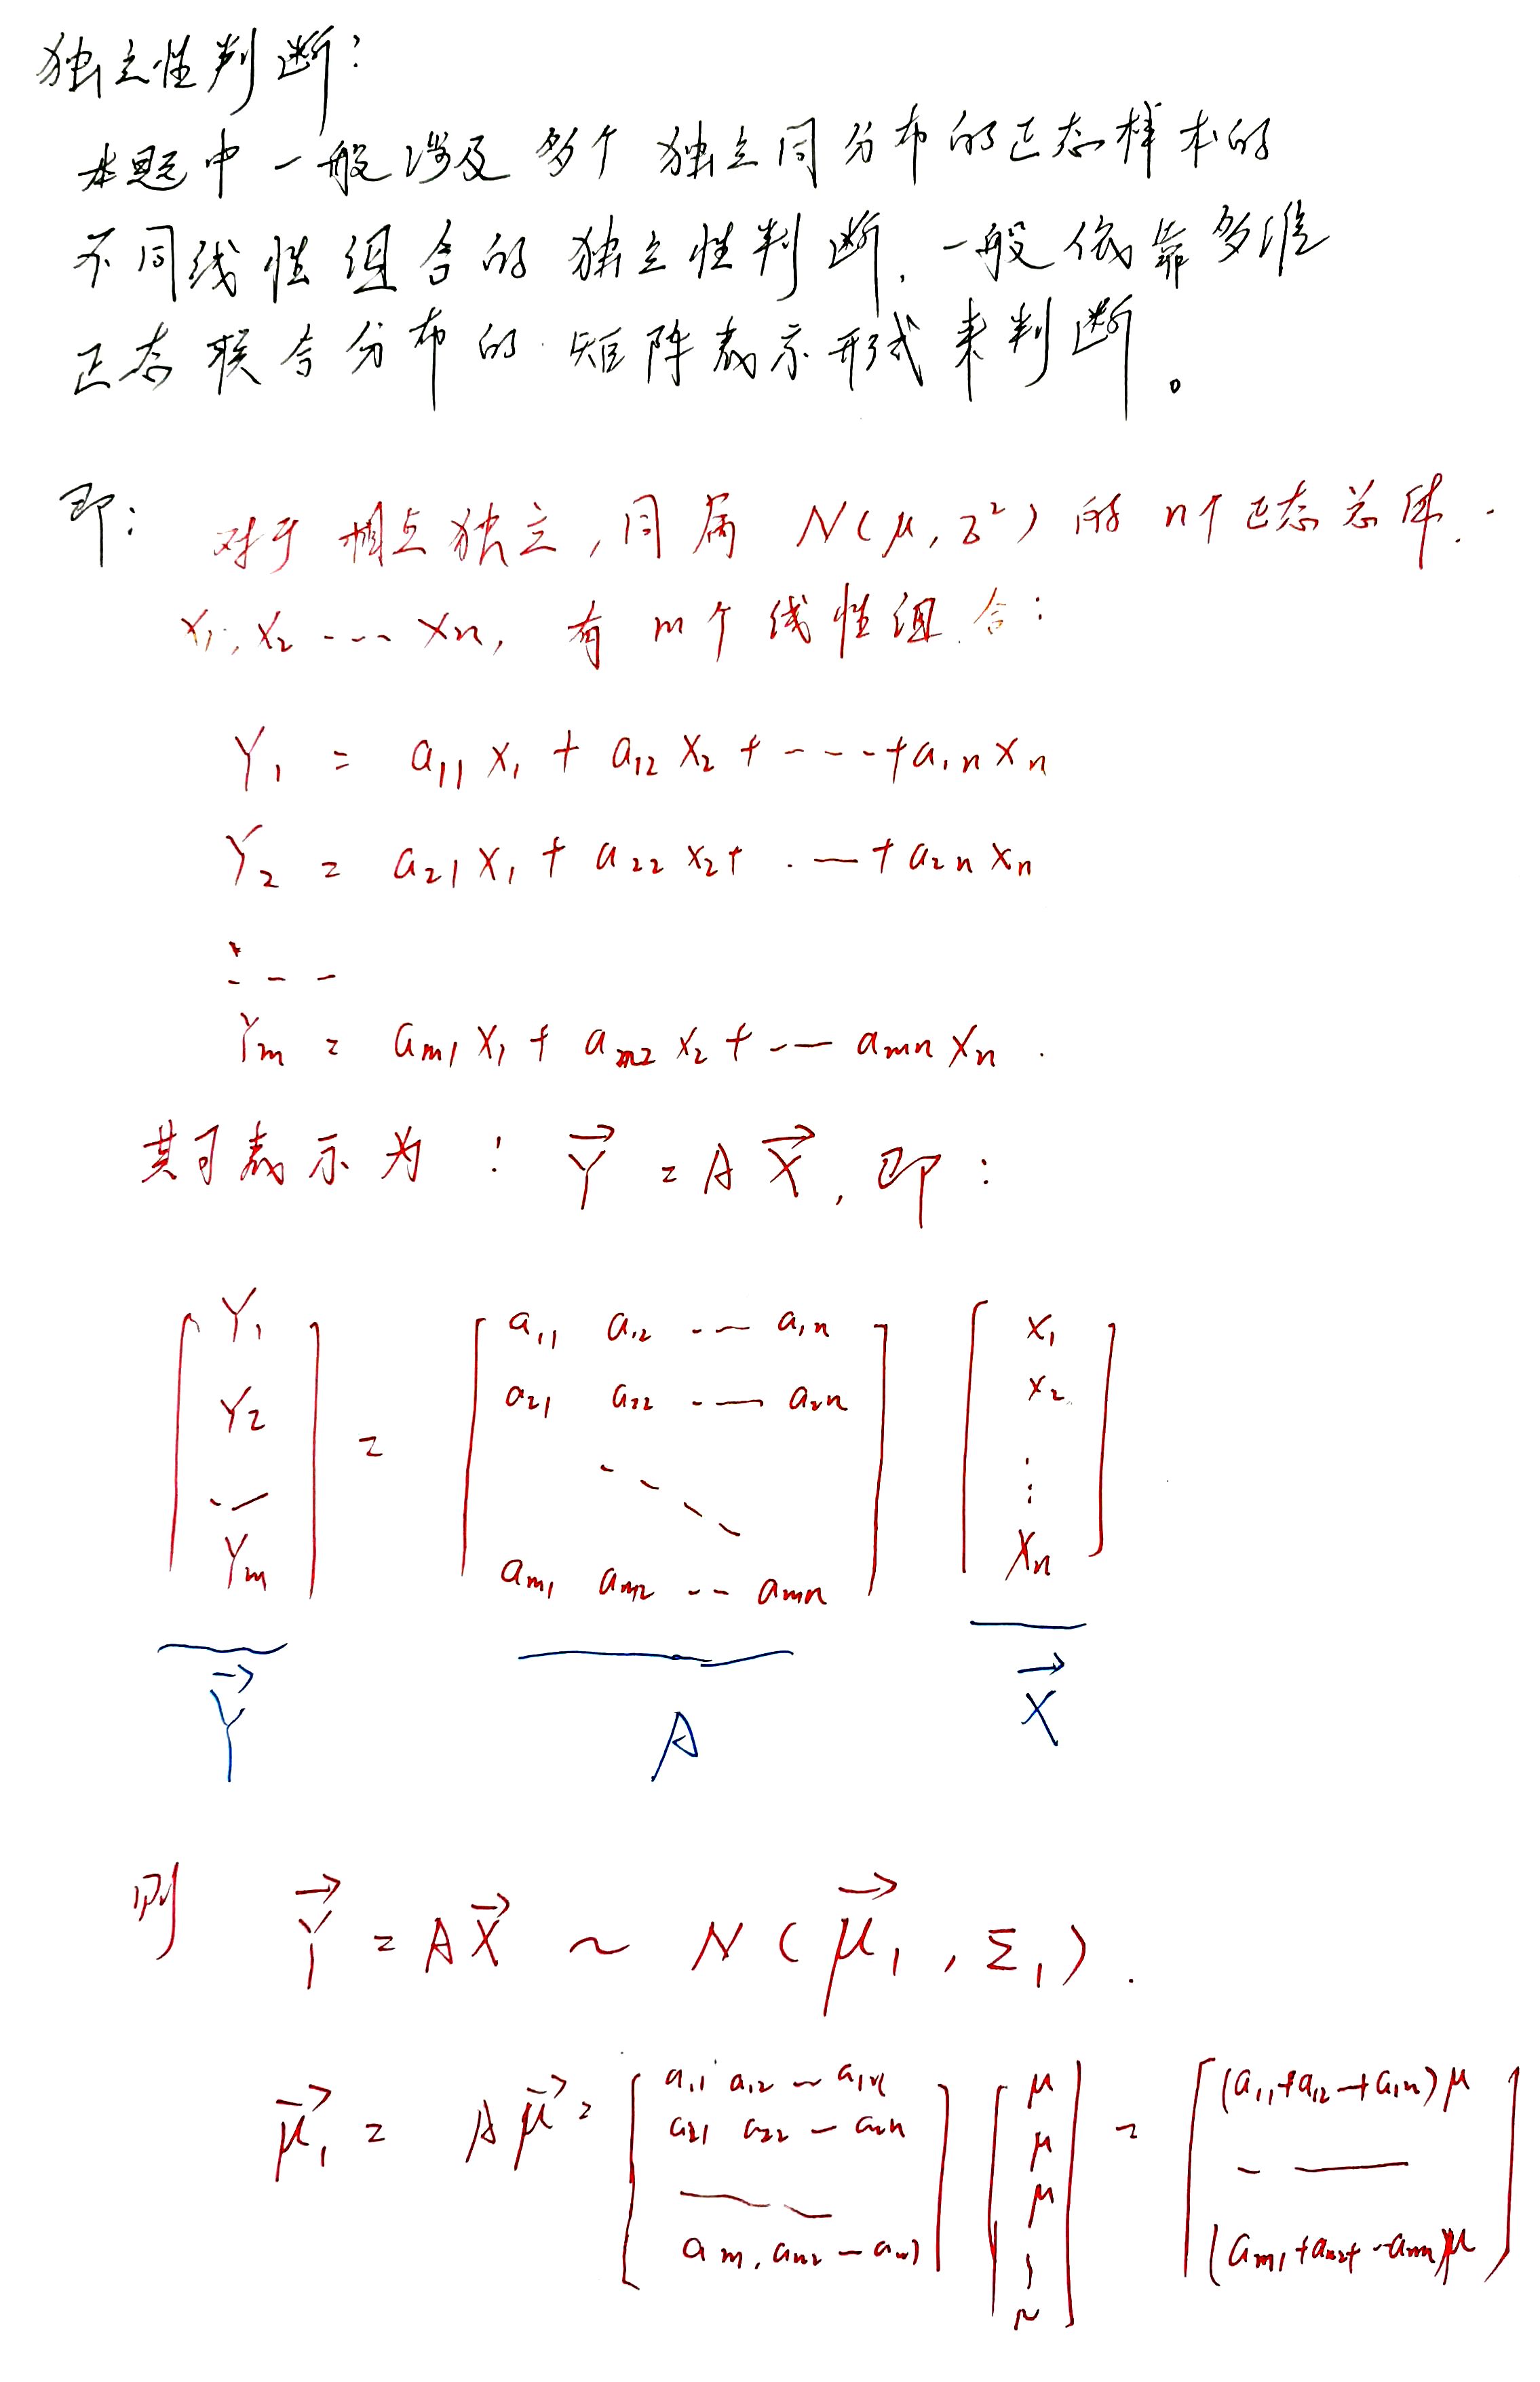 独立性判断：
本题中一般涉及多个独立同分布的正态样本的
不同线性组合的独立性判断，一般依靠多维
正态联合分布的矩阵表示形式来判断。
即： 对于相互独立，同属 N(μ, σ²) 的 n个正态总体．
X₁, X₂ ---- Xn, 有 m个线性组合：
Y₁ = a₁₁X₁ + a₁₂X₂ + ---- + a₁nXn
Y₂ = a₂₁X₁ + a₂₂X₂ + ·— + a₂nXn
⋮ - -
Ym = am₁X₁ + am₂X₂ + -— amnXn .
其可表示为： Y⃗ = AX⃗, 即：
[Y₁ Y₂ ·— Ym] = [a₁₁ a₁₂ -— a₁n a₂₁ a₂₂ -— a₂n ---- am₁ am₂ -- amn] [X₁ X₂ ⋮ Xn]
Y⃗ A X⃗
则 Y⃗ = AX⃗ ~ N(μ⃗₁, Σ₁).
μ⃗₁ = Aμ⃗ = [a₁₁ a₁₂ — a₁n a₂₁ a₂₂ — a₂n —-— am₁ am₂ — amn] [μ μ μ ⋮ μ] = [(a₁₁+a₁₂—+a₁n)μ - — (am₁+am₂+--amn)μ]